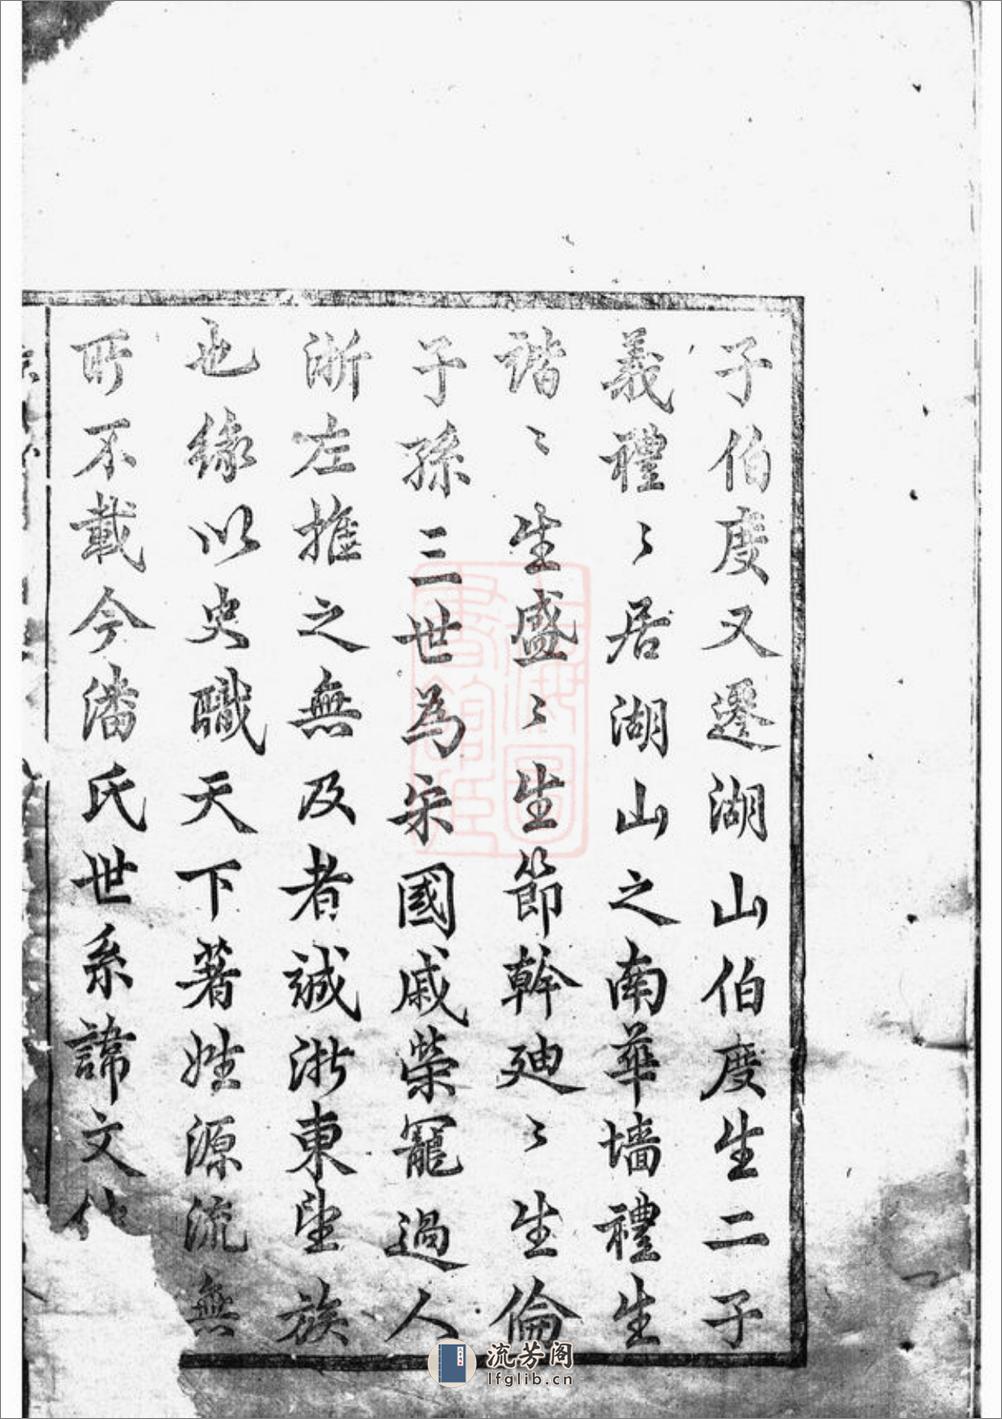 子伯度又遷湖山伯度生二子
義禮〻居湖山之南華墻禮生
諧〻生盛〻生節幹廸〻生倫
子孫三世為宋國戚榮寵過人
浙左推之無及者誠浙東望族
也緣以史職天下著姓源流無
所不載今潘氏世系諱文
上海圖
書館藏
流芳阁
lfglib.cn